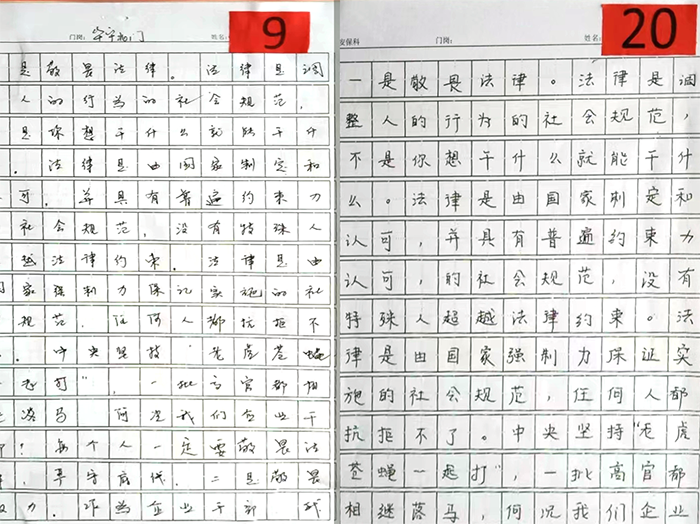 门岗: 牢牢把门 姓名:
9
是敬畏法律。法律是调
人的行为的社会规范,
是你想干什么就能干什
。法律是由国家制定和
可。并具有普遍约束力
社会规范,没有特殊人
越法律约束。法律是由
家强制力保证实施的社
规范,任何人都抗拒不
。中央坚持“老虎苍蝇
打”,一批高官都相
落马,何况我们企业干
？每个人一定要敬畏法
,享守底线。二是敬畏
力。作为企业干部
安保科 门岗: 姓名:
20
一是敬畏法律。法律是调
整人的行为的社会规范,
不是你想干什么就能干什
么。法律是由国家制定和
认可,并具有普遍约束力
认可,的社会规范,没有
特殊人超越法律约束。法
律是由国家强制力保证实
施的社会规范,任何人都
抗拒不了。中央坚持“老虎
苍蝇一起打”,一批高官都
相继落马,何况我们企业